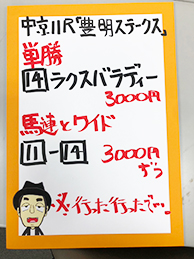 中京11R「豊明ステークス」
単勝
14 ラクスバラディー
3000円
馬連とワイド
11-14 3000円
ずつ
必ず行った行ったで…